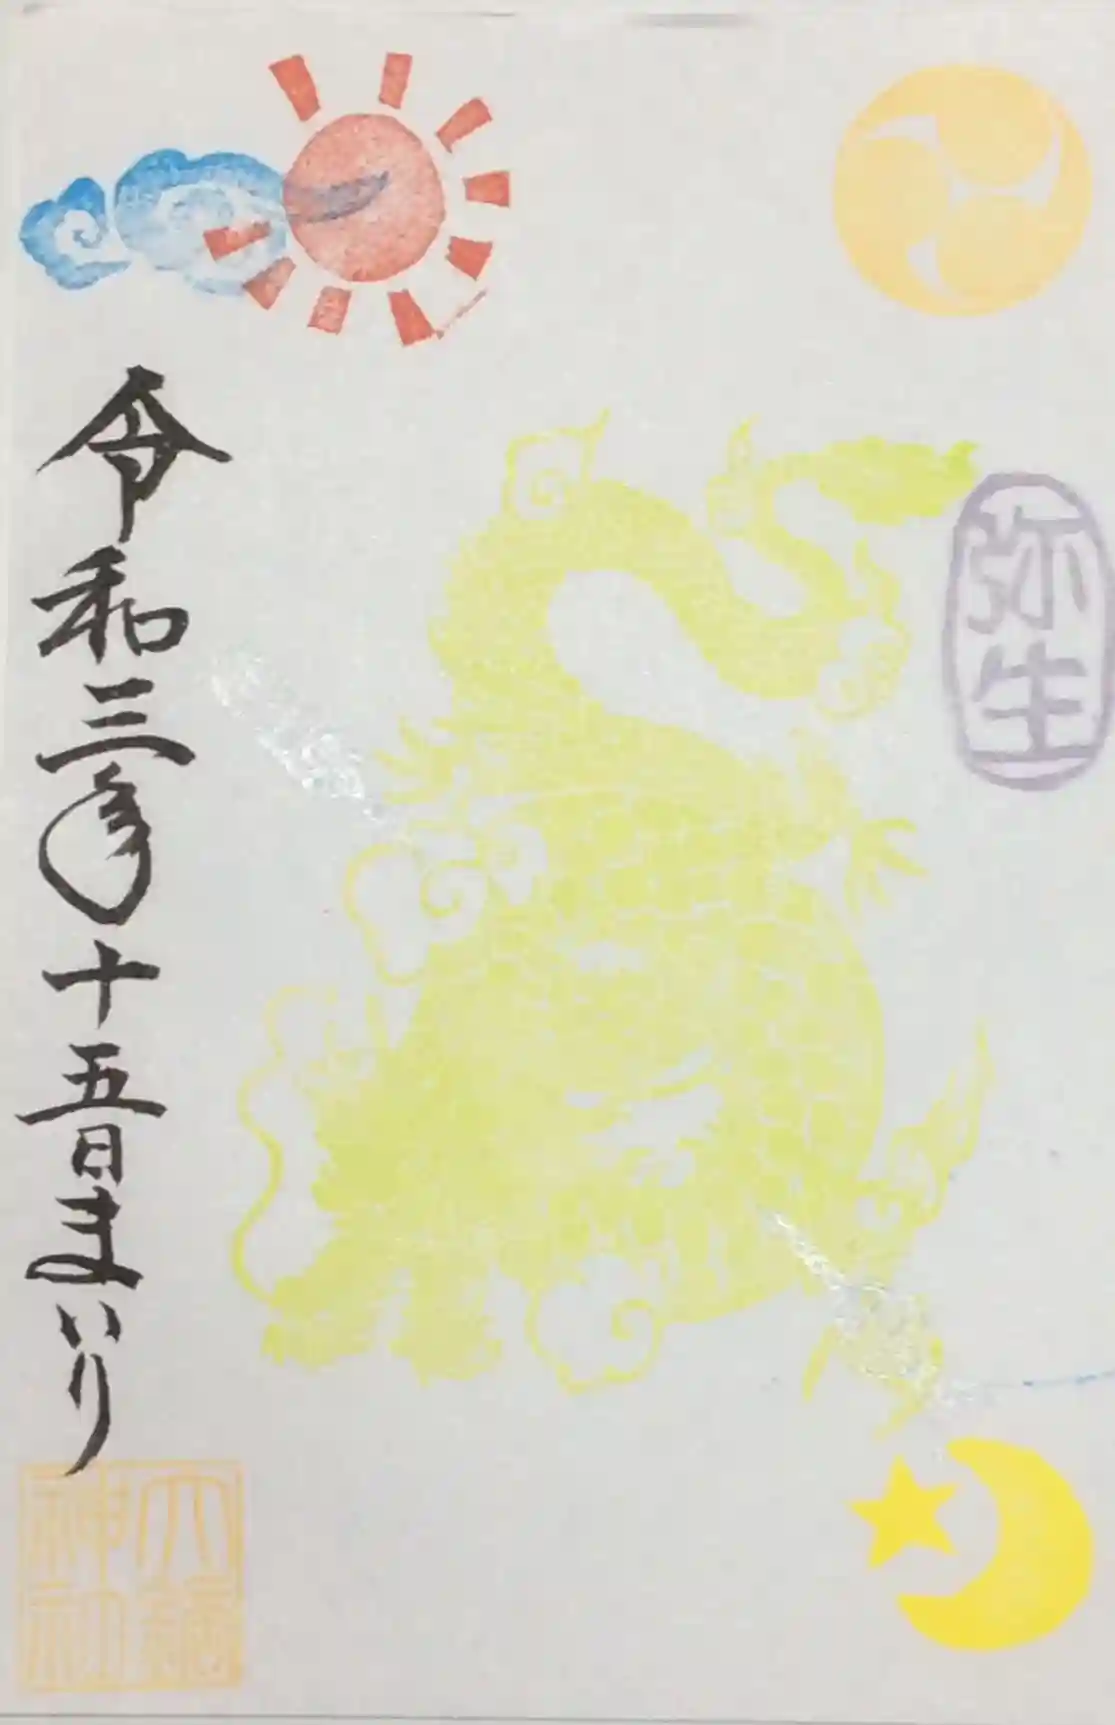 弥生
令和三年十五日まいり
神社